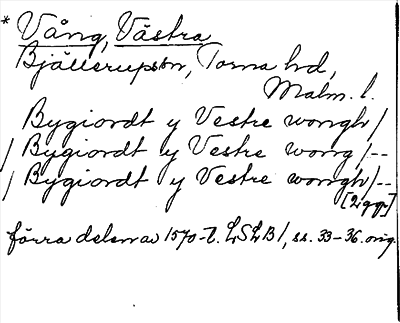 * Vång, Västra
Bjällerupsbn, Torna hd,
Malm. l.
Bygiordt y Vestre wongh /
/ Bygiordt y Vestre wong /--
/ Bygiordt y Vestre wongh /--
[2 ggr]
förra delen av 1570-t. LSLB1, ss. 33-36. orig.